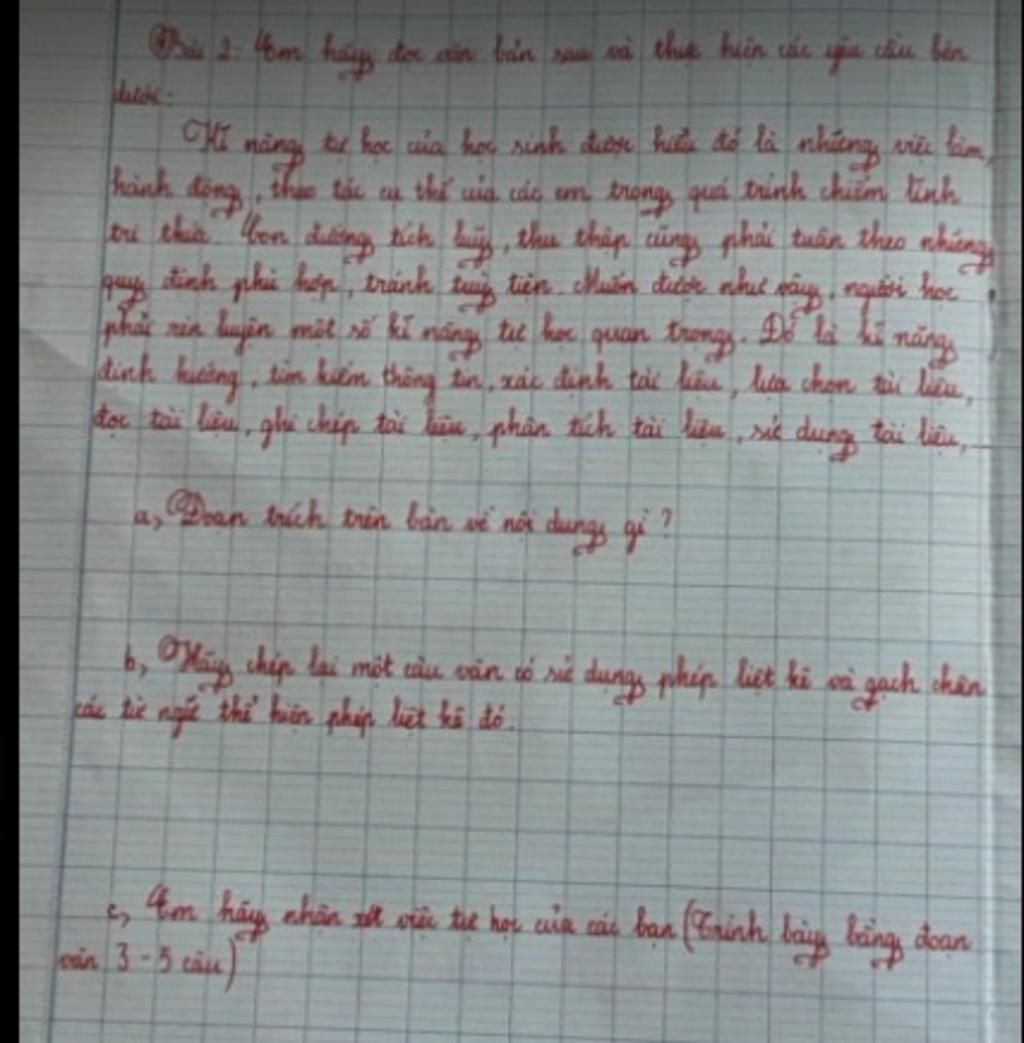 Bài 2: Em hãy đọc văn bản sau và thực hiện các yêu cầu bên
dưới:
Kĩ năng tự học của học sinh được hiểu đó là những việc làm,
hành động, thao tác cụ thể của các em trong quá trình chiếm lĩnh
tri thức. Con đường tích luỹ, thu thập cũng phải tuân theo những
quy định phù hợp, tránh tuỳ tiện. Muốn được như vậy, người học
phải rèn luyện một số kĩ năng tự học quan trọng. Đó là kĩ năng
định hướng, tìm kiếm thông tin, xác định tài liệu, lựa chọn tài liệu,
đọc tài liệu, ghi chép tài liệu, phân tích tài liệu, sử dụng tài liệu,...
a, Đoạn trích trên bàn về nội dung gì?
b, Hãy chép lại một câu văn có sử dụng phép liệt kê và gạch chân
các từ ngữ thể hiện phép liệt kê đó.
c, Em hãy nhận xét việc tự học của các bạn (Trình bày bằng đoạn
văn 3 - 5 câu)